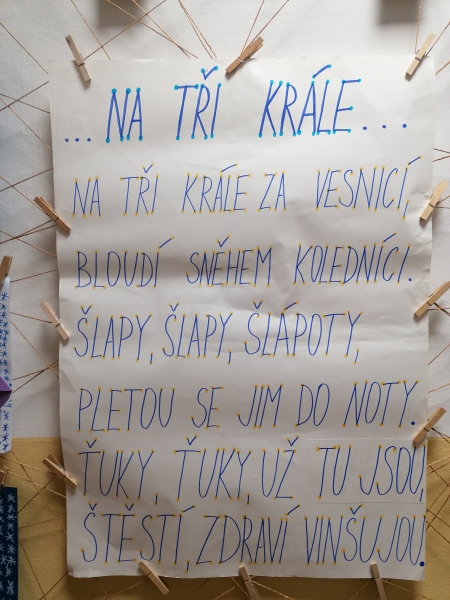 ... NA TŘÍ KRÁLE...
NA TŘÍ KRÁLE ZA VESNICÍ,
BLOUDÍ SNĚHEM KOLEDNÍCI.
ŠLAPY, ŠLAPY, ŠLÁPOTY,
PLETOU SE JIM DO NOTY.
ŤUKY, ŤUKY, UŽ TU JSOU,
ŠTĚSTÍ, ZDRAVÍ VINŠUJOU.